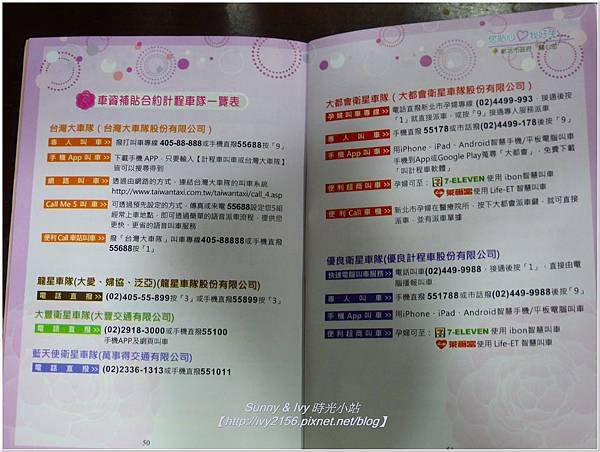 車資補貼合約計程車隊一覽表
台灣大車隊（台灣大車隊股份有限公司）
專人叫車>> 撥打叫車專線405-88-888或手機直撥55688按「9」
手機APP叫車>> 下載手機APP，只要輸入【計程車叫車或台灣大車隊】
皆可以搜尋得到
網路叫車>> 透過由網路的方式，連結台灣大車隊的叫車系統
http://www.taiwantaxi.com.tw/taiwantaxi/call_4.asp
Call Me 5 叫車>> 可透過預先設定的方式，傳真或來電55688設定您5組
經常上車地點，即可透過簡單的語音派車流程，提供您
更快、更省的語音叫車服務
便利Call車站叫車>> 撥「台灣大車隊」叫車專線405-88888或手機直撥
55688按「1」
龍星車隊(大愛、婦協、泛亞)(龍星車隊股份有限公司)
電話直撥>> (02)405-55-899按「3」或手機直撥55899按「3」
大豐衛星車隊(大豐交通有限公司)
電話直撥>> (02)2918-3000或手機直撥55100
手機APP及網頁叫車
藍天使衛星車隊(萬事得交通有限公司)
電話直撥>> (02)2336-1313或手機直撥551011
50
您貼心 我好孕
新北市政府 關心您
大都會衛星車隊（大都會衛星車隊股份有限公司）
孕婦叫車專線>> 電話直撥新北市孕婦專線 (02)4499-993，接通後按
「1」就直接派車，或按「9」接通專人服務派車
專人叫車>> 手機直撥 55178或市話撥(02)4499-178後按「9」
手機App叫車>> 用iPhone、iPad、Android智慧手機/平板電腦叫車
手機到App或Google Play蒐尋「大都會」，免費下載
「叫計程車軟體」
便利超商叫車>> 孕婦可至：7-ELEVEN 使用 ibon智慧叫車
萊爾富 使用 Life-ET 智慧叫車
便利Call車機>> 新北市孕婦在醫療院所，按下大都會派車鍵，就可直接
派車，並有派車單據
優良衛星車隊(優良計程車股份有限公司)
快捷電腦叫車服務>> 電話叫車(02)449-9988，接通後按「1」，直接由電
腦播報叫車
專人叫車>> 手機直撥 551788或市話撥(02)449-9988後按「9」
手機App叫車>> 用iPhone、iPad、Android智慧手機/平板電腦叫車
便利超商叫車>> 孕婦可至：7-ELEVEN 使用 ibon智慧叫車
萊爾富 使用 Life-ET 智慧叫車
Sunny & Ivy 時光小站
【http://ivy2156.pixnet.net/blog】